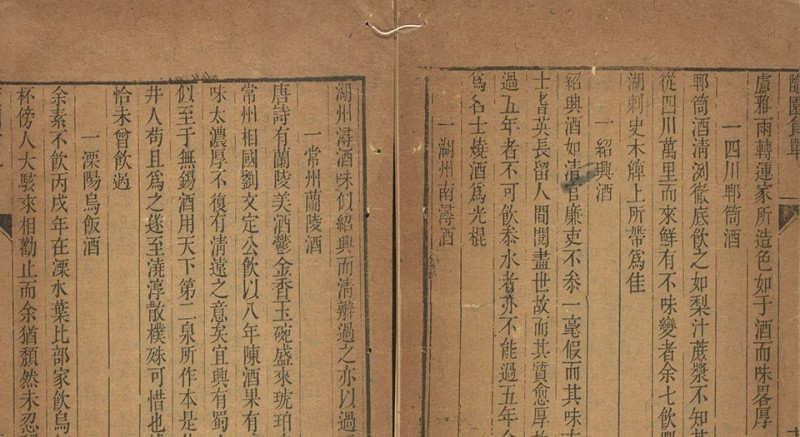 隨園食單
盧雅雨轉運家所造色如于酒而味畧厚
一四川郫筒酒
郫筒酒清洌徹底飲之如梨汁蔗漿不知其
從四川萬里而來鮮有不味變者余七飲郫
湖刺史木簰上所帶爲佳
一紹興酒
紹興酒如清官廉吏不叅一毫假而其味方
士耆英長留人間閱盡世故而其質愈厚故
過五年者不可飲叅水者亦不能過五年余
爲名士燒酒爲光棍
一湖州南潯酒
湖州潯酒味似紹興而清辣過之亦以過三
一常州蘭陵酒
唐詩有蘭陵美酒鬱金香玉碗盛來琥珀
常州相國劉文定公飲以八年陳酒果有
味太濃厚不復有清遠之意矣宜興有蜀山
似至于無錫酒用天下第二泉所作本是佳
井人苟且爲之遂至澆淳散樸殊可惜也據
恰未曾飲過
一溧陽烏飯酒
余素不飲丙戌年在溧水葉比部家飲烏
杯傍人大駭來相勸止而余猶頹然未忍